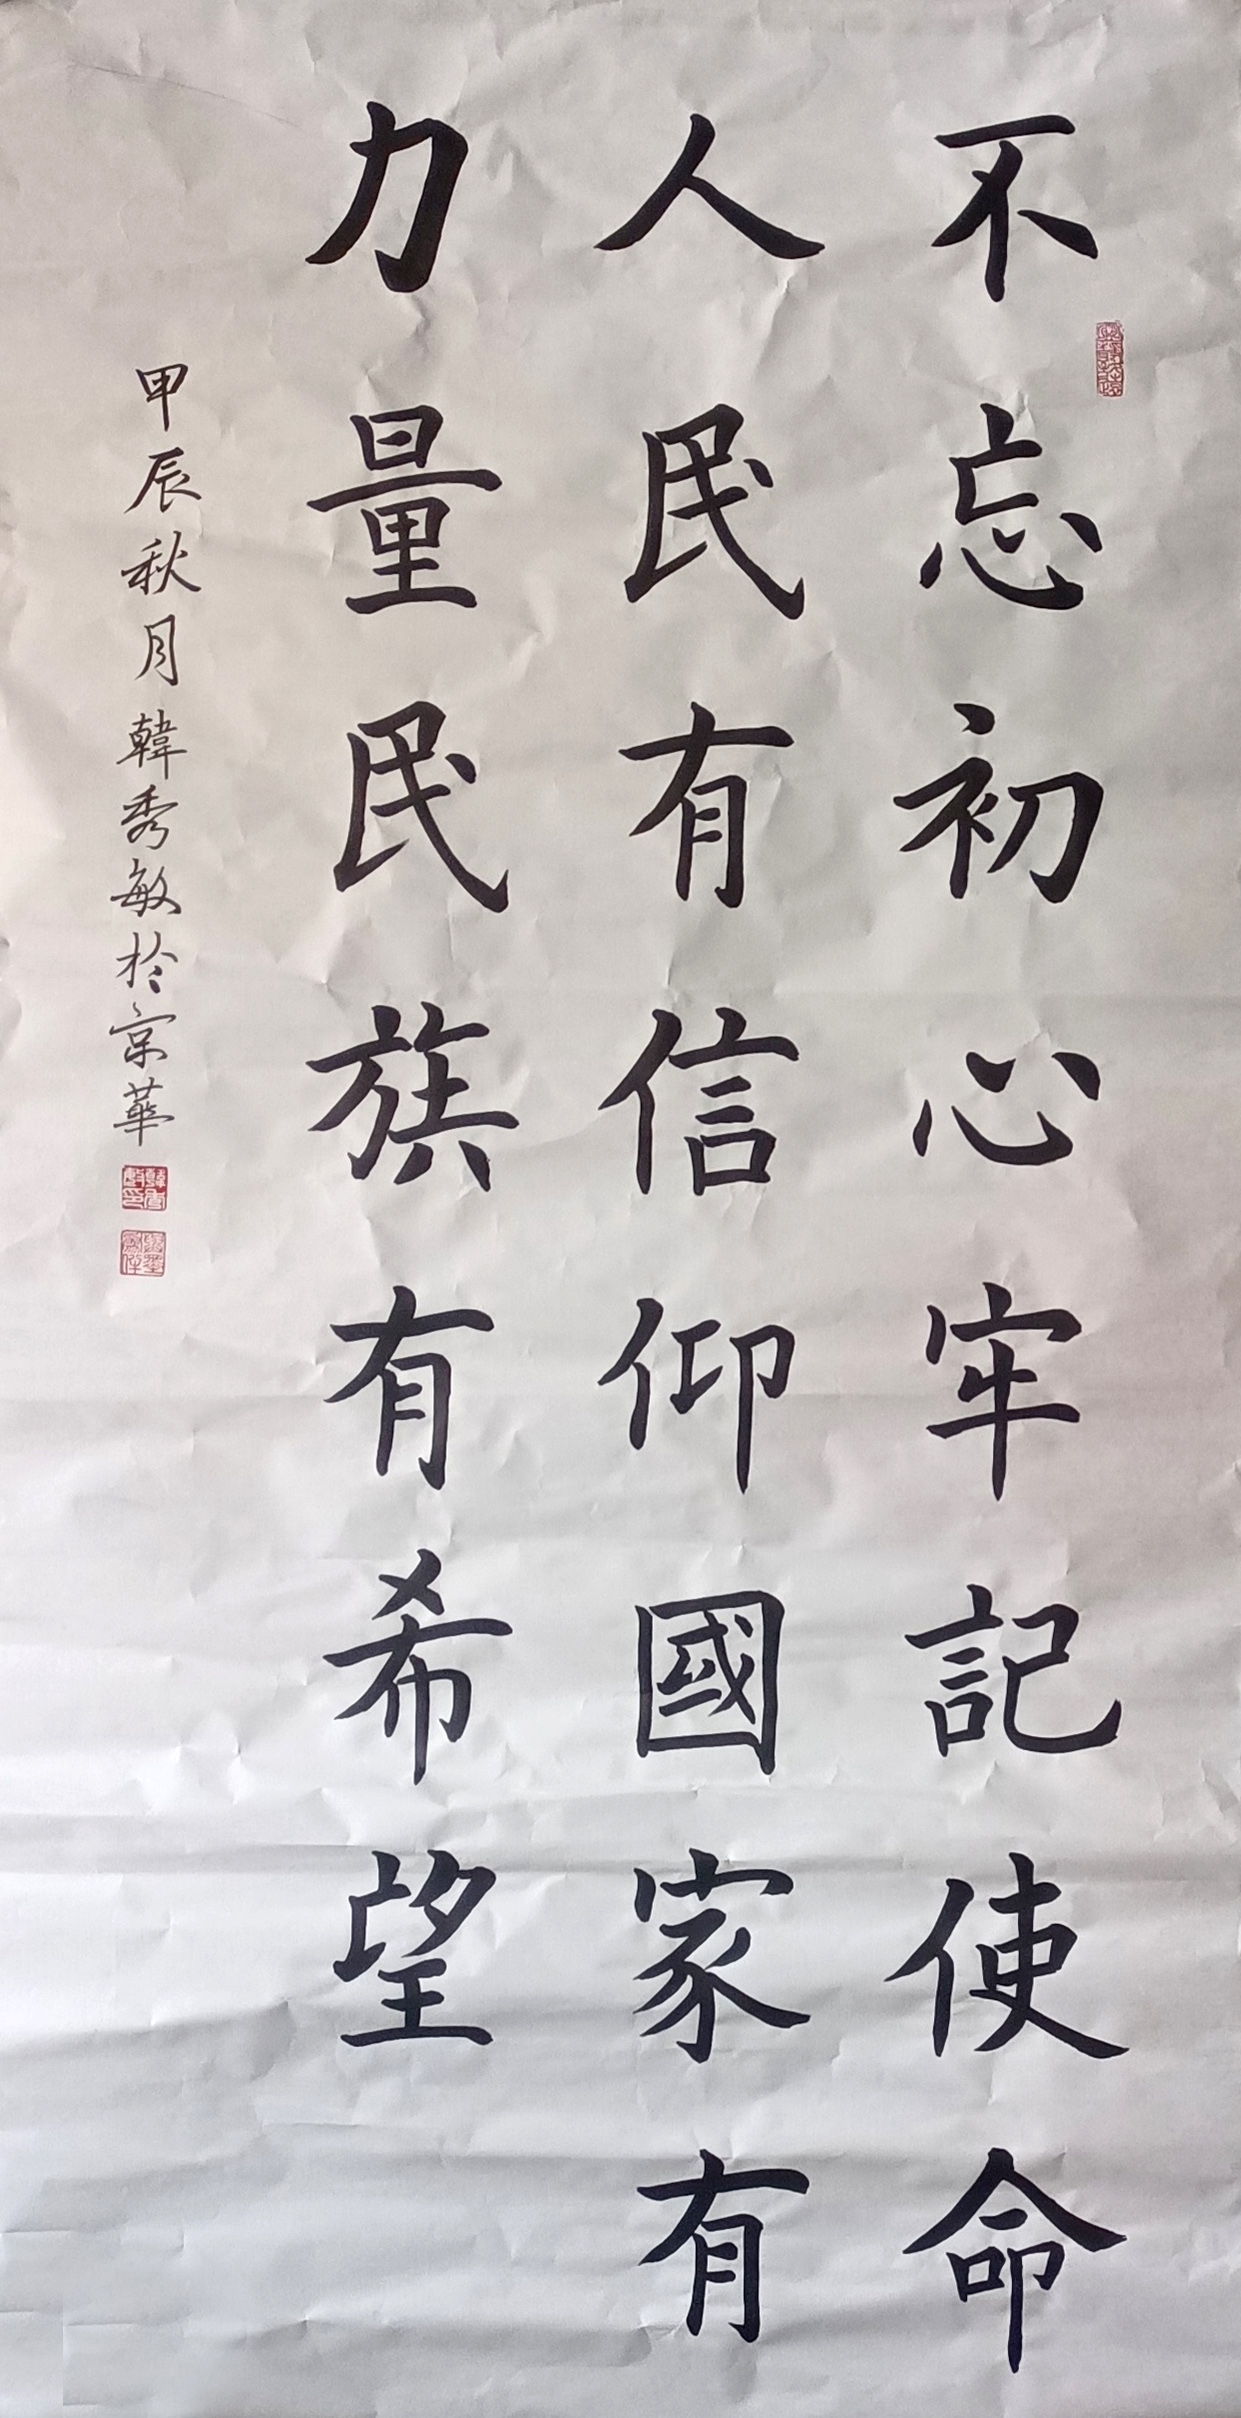 不忘初心牢記使命
人民有信仰國家有
力量民族有希望
甲辰秋月韓秀敏於京華